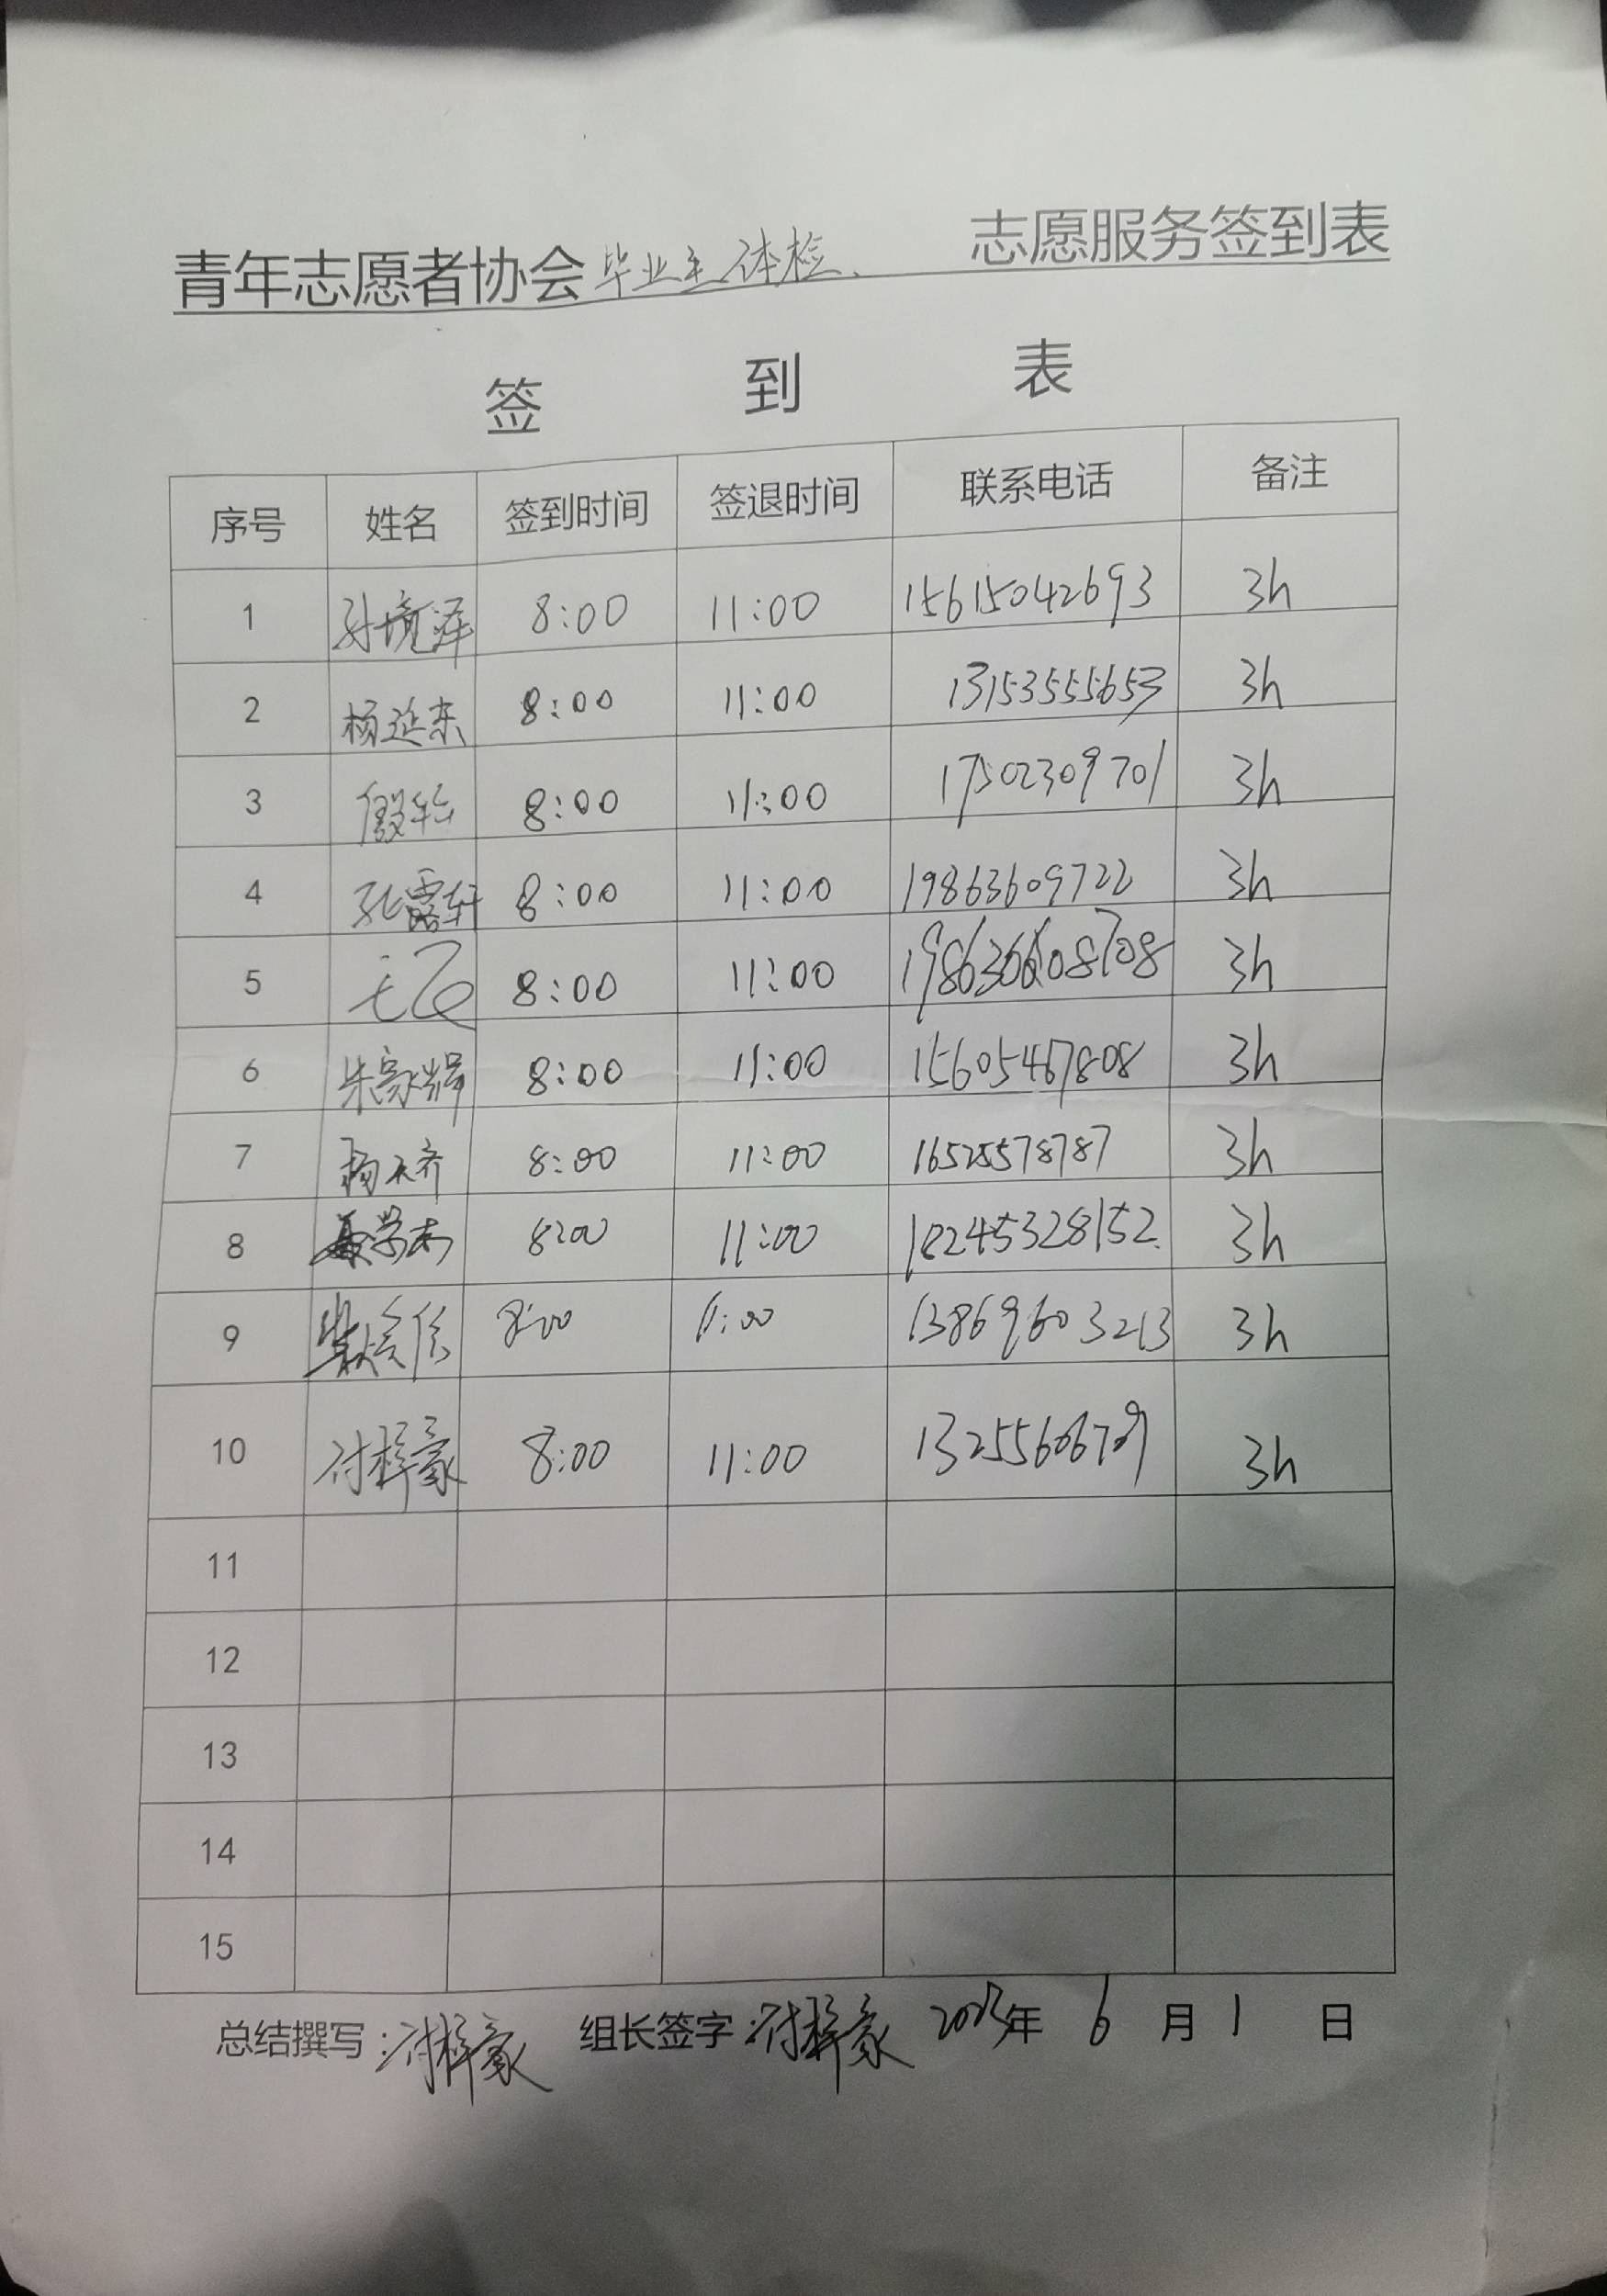 青年志愿者协会毕业生体检、 志愿服务签到表
签 到 表
序号 姓名 签到时间 签退时间 联系电话 备注
1 孙境泽 8:00 11:00 15615042693 3h
2 杨延东 8:00 11:00 13153555653 3h
3 8:00 11:00 17502309701 3h
4 张露轩 8:00 11:00 19863609722 3h
5 8:00 11:00 3h
6 朱家辉 8:00 11:00 15605467808 3h
7 杨天齐 8:00 11:00 16525578787 3h
8 聂学杰 8:00 11:00 3h
9 8:00 11:00 13869603213 3h
10 付梓豪 8:00 11:00 13255606709 3h
11
12
13
14
15
总结撰写:付梓豪 组长签字:付梓豪 2023年 6 月 1 日